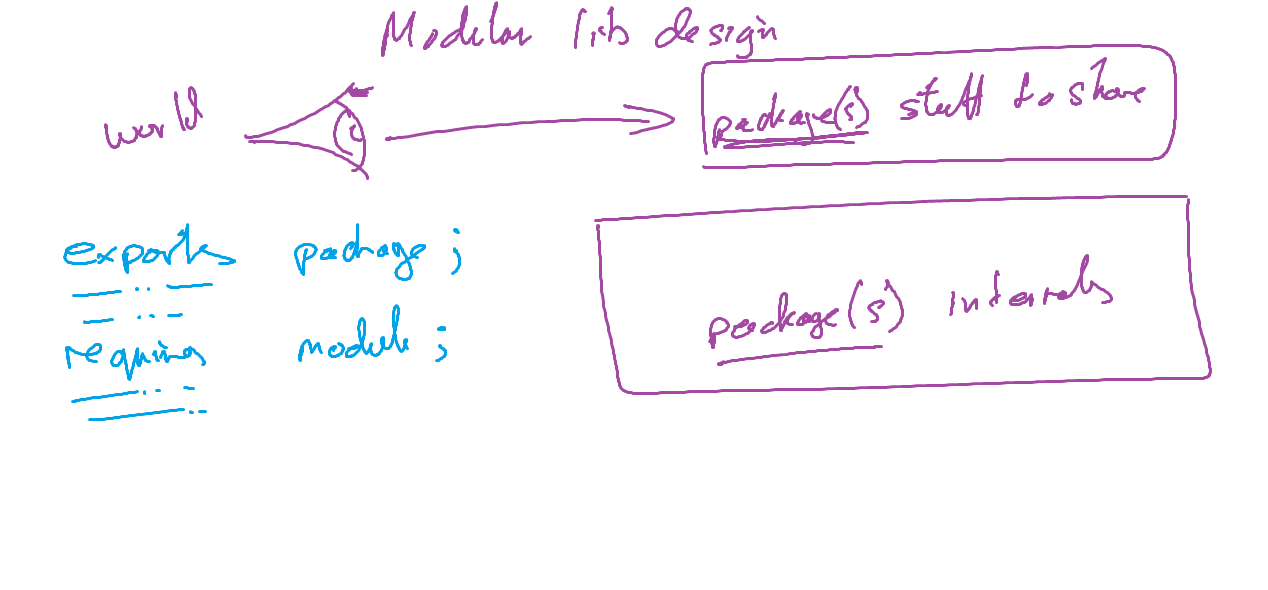 Modular lib design
world
package(s) stuff to share
exports package;
requires module;
package(s) internals